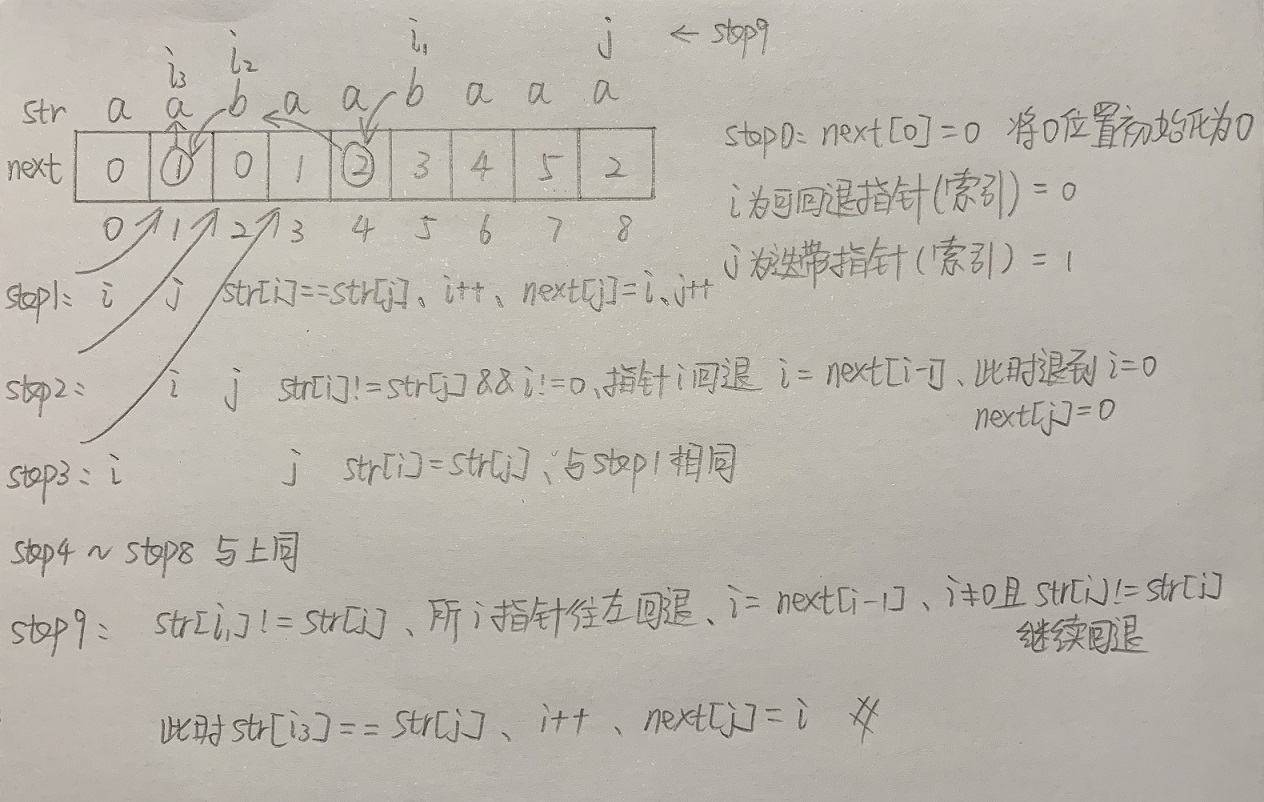 i₁ j ← stop9
i₃ i₂
str a a b a a b a a a
next 0 1 0 1 2 3 4 5 2
0 1 2 3 4 5 6 7 8
stop0: next[0]=0 将0位置初始化为0
i为可回退指针(索引) = 0
j为迭带指针(索引) = 1
stop1: i j str[i]==str[j]、i++、next[j]=i、j++
stop2: i j str[i]!=str[j]&&i!=0、指针i回退 i = next[i-1]、此时退到i=0
next[j]=0
stop3: i j str[i]=str[j]、与stop1相同
stop4 ~ stop8 与上同
stop9: str[i₁]!=str[j]、所i指针往左回退、i= next[i-1]、i≠0且str[i]!=str[j]
继续回退
此时str[i₃]== str[j]、i++、next[j]=i